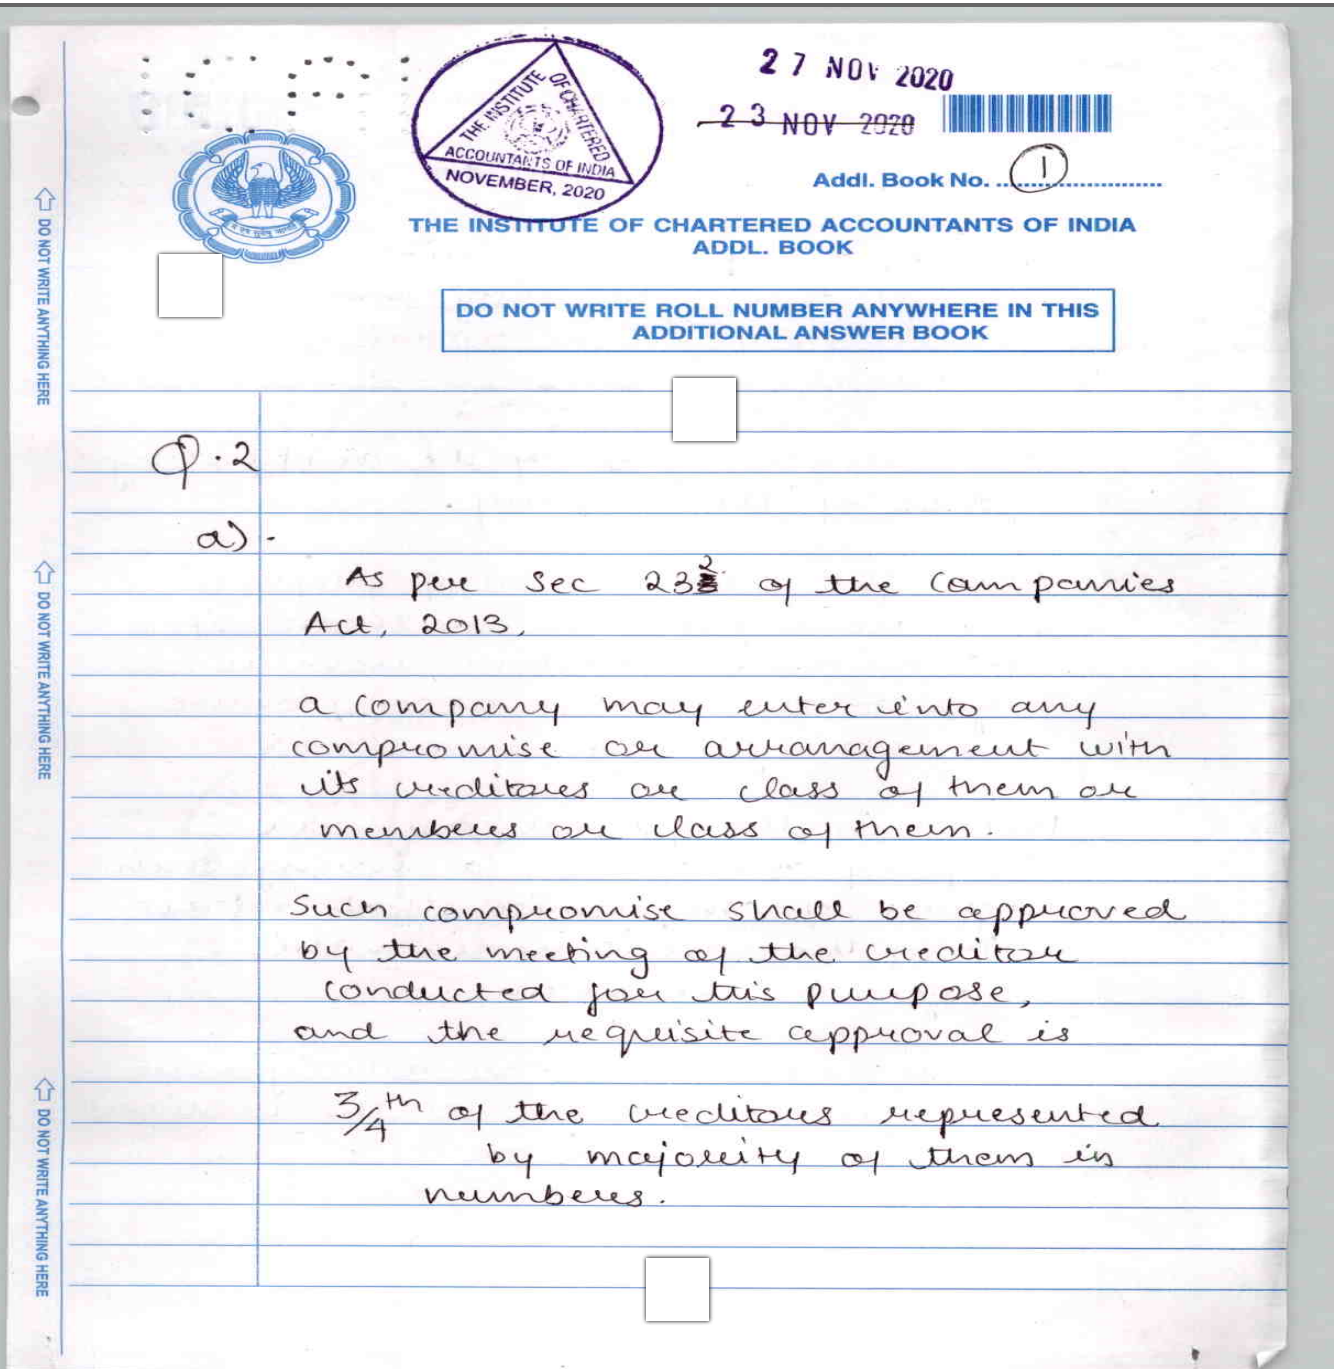 27 NOV 2020
23 NOV 2020
THE INSTITUTE OF CHARTERED
ACCOUNTANTS OF INDIA
NOVEMBER, 2020
Addl. Book No. ... 1 ...
THE INSTITUTE OF CHARTERED ACCOUNTANTS OF INDIA
ADDL. BOOK
DO NOT WRITE ROLL NUMBER ANYWHERE IN THIS
ADDITIONAL ANSWER BOOK
DO NOT WRITE ANYTHING HERE
DO NOT WRITE ANYTHING HERE
DO NOT WRITE ANYTHING HERE
Q.2
a) -
As per Sec 232 of the Companies
Act, 2013,
a company may enter into any
compromise or arranagement with
its creditores or class of them or
members or class of them.
Such compromise shall be approved
by the meeting of the creditor
conducted for this purpose,
and the requisite approval is
3/4th of the creditors represented
by majority of them in
numbers.